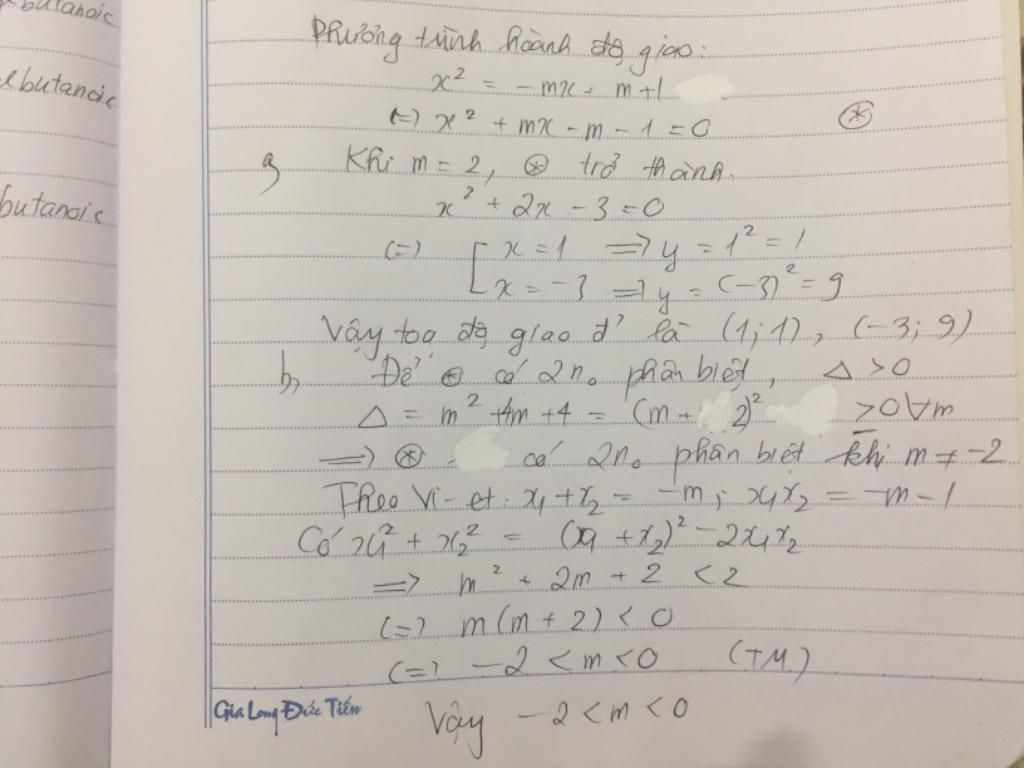 butanoic
butanoic
butanoic
Phương trình hoành độ giao:
x² = -mx + m+1
(=) x² + mx - m - 1 = 0 (*)
a, Khi m = 2, (*) trở thành.
x² + 2x - 3 = 0
(=) [ x = 1 => y = 1² = 1
x = -3 => y = (-3)² = 9
Vậy toạ độ giao đ' là (1; 1), (-3; 9)
b, Để (*) có 2 n₀ phân biệt, Δ > 0
Δ = m² + 4m + 4 = (m + 2)² ≥ 0 ∀m
=> (*) có 2 n₀ phân biệt khi m ≠ -2
Theo Vi-et: x₁ + x₂ = -m; x₁x₂ = -m - 1
Có x₁² + x₂² = (x₁ + x₂)² - 2x₁x₂
=> m² + 2m + 2 < 2
(=) m(m + 2) < 0
(=) -2 < m < 0 (TM)
Gia Long Đức Tiến
Vậy -2 < m < 0